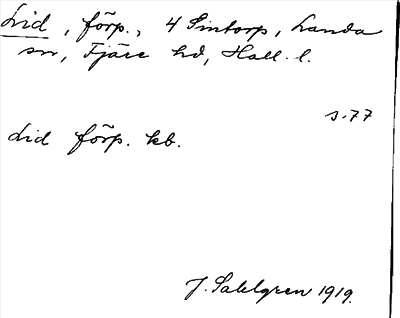 Lid, förp., 4 Sintorp, Landa
sn, Fjäre hd, Hall. l.
s. 77
Lid förp. kb.
J. Sahlgren 1919.